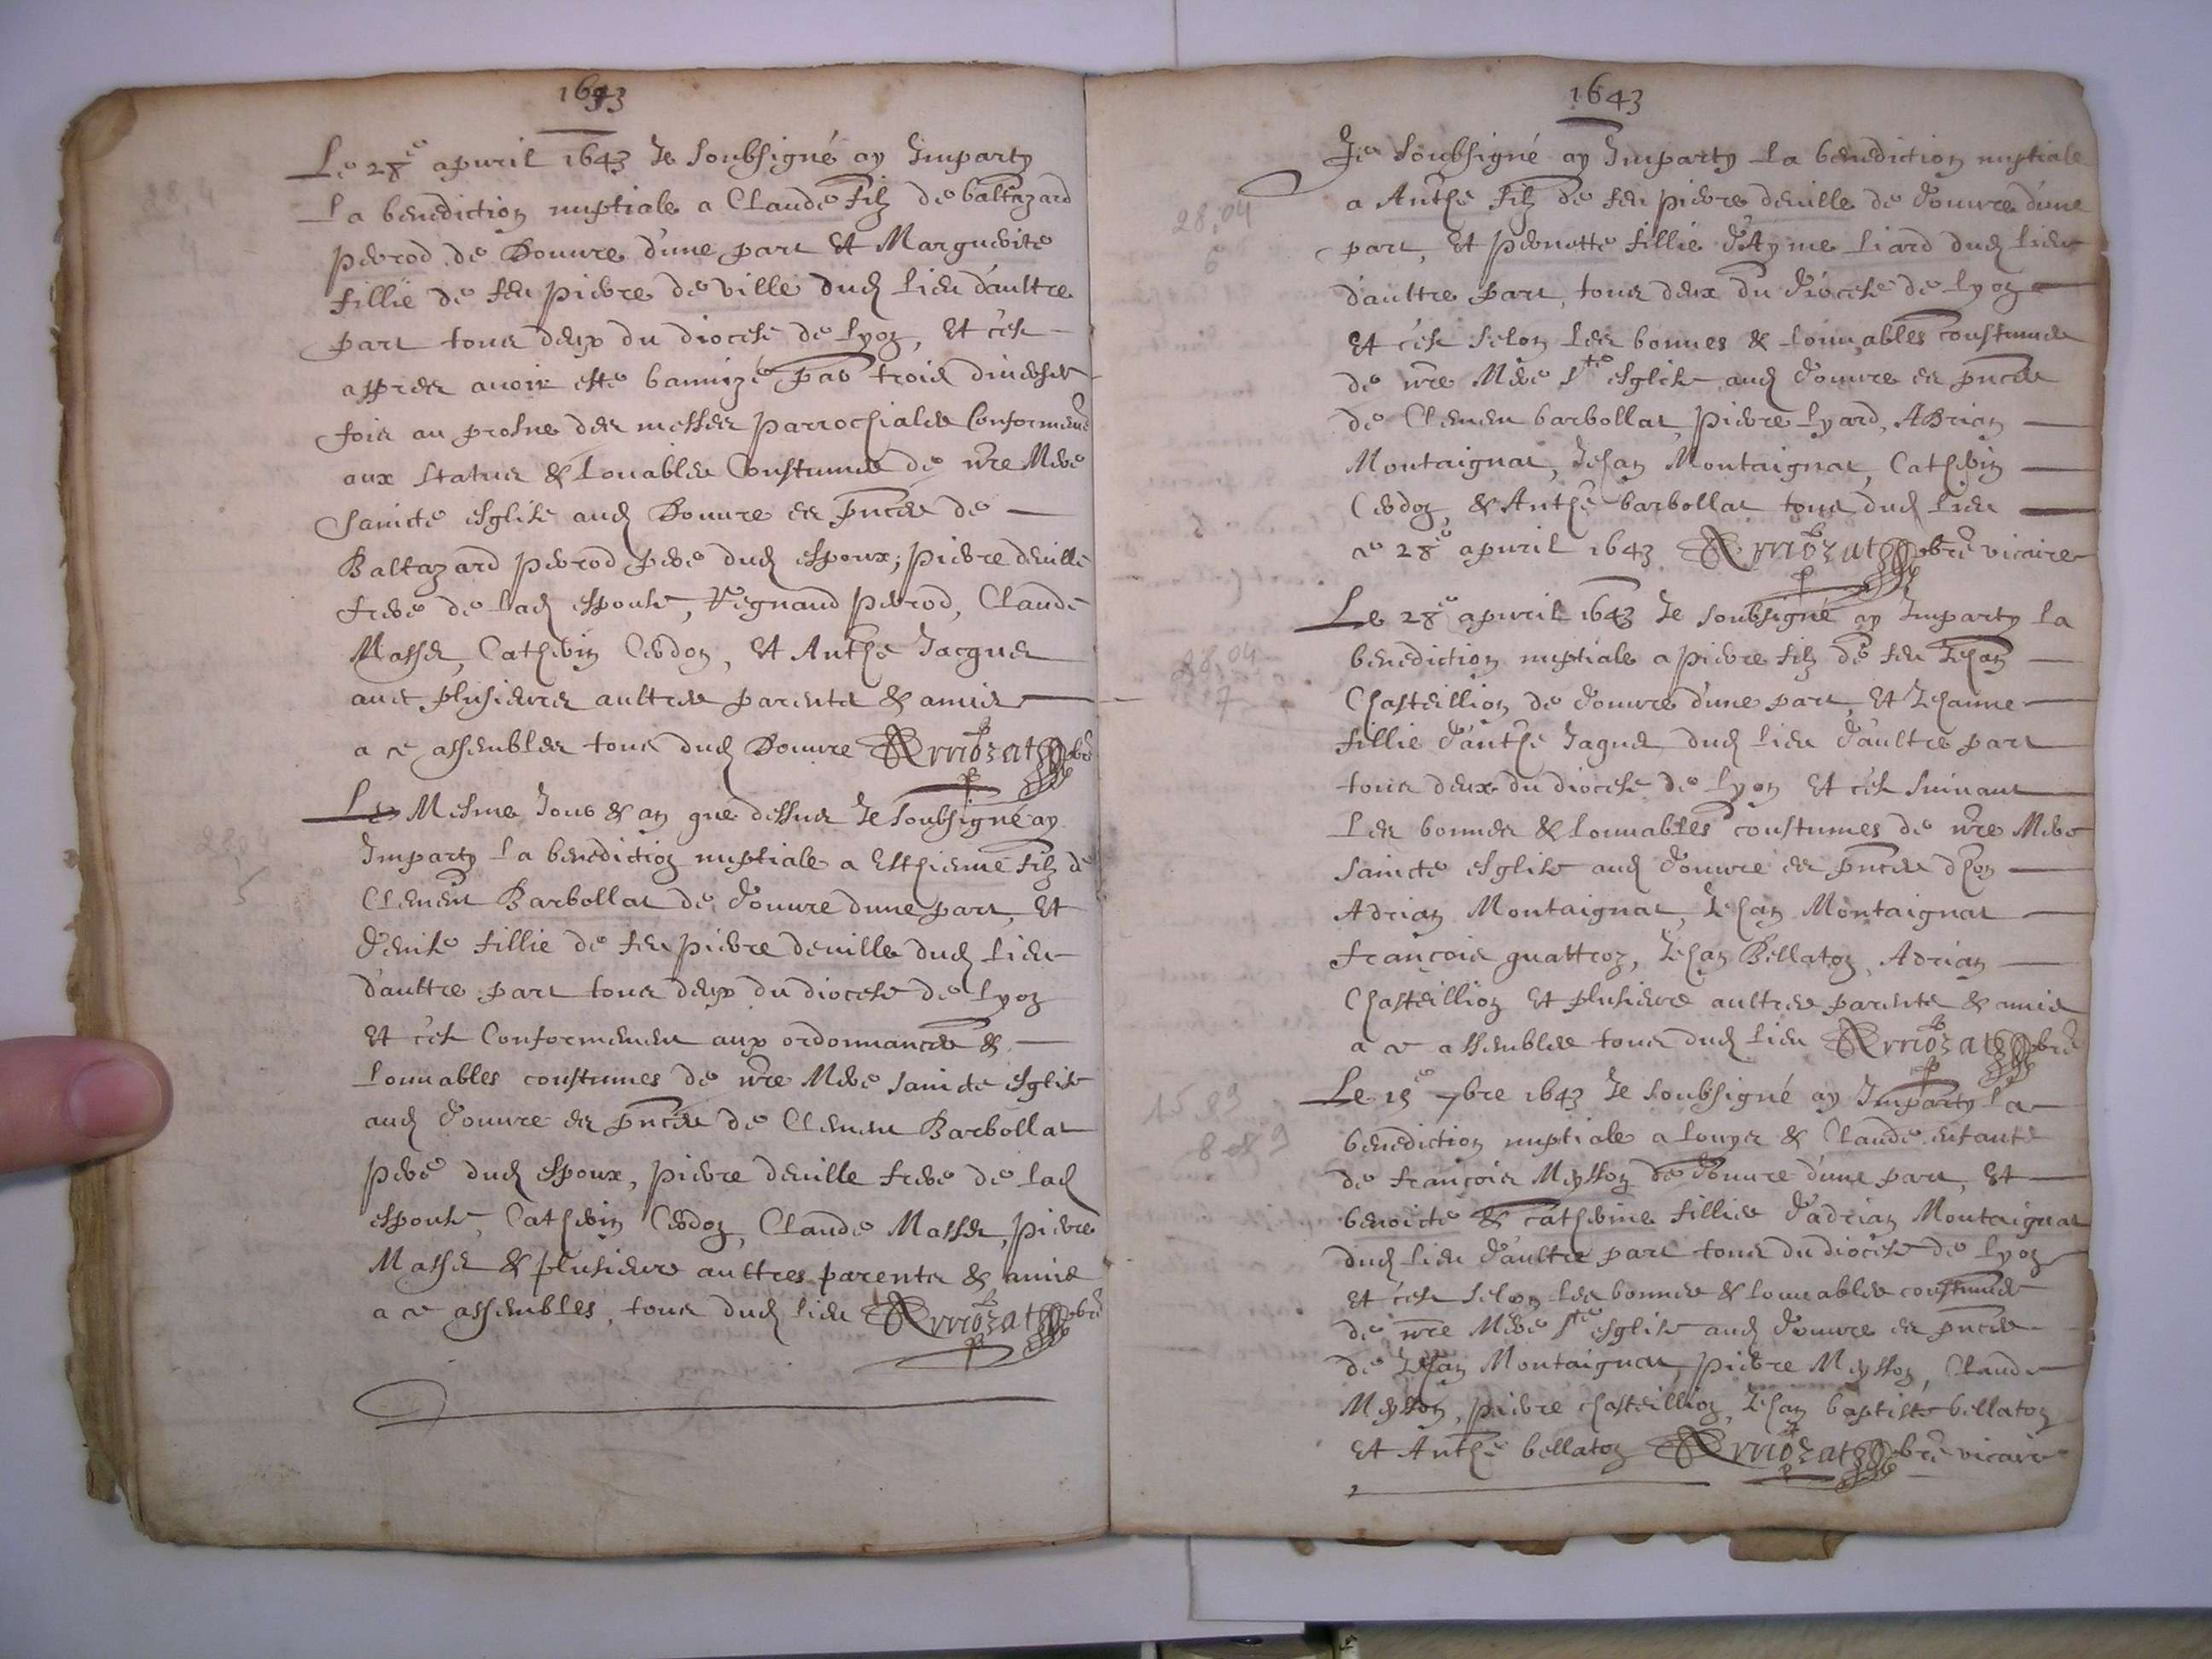 1643
Le 28e apvril 1643 Je soubsigné ay Imparty
la benediction nuptiale a Claude filz de baltazard
perrod de Douvre d'une part Et Marguerite
fillie de feu pierre deville dud lieu d'aultre
part tous deux du diocese de lyon, Et c'est
appres avoir esté bannizé par trois diverses
fois au prosne des messes parrochiales Conformemt
aux statuts & louables Coustumes de nre Mere
saincte esglise aud Douvre es pnces de
Baltazard perrod pere dud espoux; pierre deville
frere de lad espouse, Regnaud perrod, Claude
Masse, Catherin Cerdon, Et Anthe Jacques
avec plusieurs aultres parents & amis
a ce assembles tous dud Douvre Armozat pbre
Le Mesme Jour & an que dessus Je soubsigné ay
Imparty la benediction nuptiale a Esthienne filz de
Clement Barbollat de douvre dune part, Et
denise fillie de feu pierre deville dud lieu
d'aultre part tous deux du diocese de lyon
Et c'est Conformement aux ordonnances &
louuables coustumes de nre Mere saincte esglise
aud douvre es pnces de Clement Barbollat
pere dud espoux, pierre deville frere de lad
espouse, Catherin Cerdon, Claude Masse, pierre
Masse & plusieurs aultres parents & amis
a ce assembles, tous dud lieu Armozat pbre
28.04
5
1643
Je soubsigné ay Imparty la benediction nuptiale
a Anthe filz de feu pierre deville de douvre d'une
part, Et pernette fillie d'Ayme liard dud lieu
d'aultre part, tous deux du diocese de lyon
Et c'est selon les bonnes & louuables coustumes
de nre Mere Ste esglise aud douvre es pnces
de Clement barbollat, pierre lyard, ADrian
Montaignat, Jehan Montaignat, Catherin
Cerdon, & Anthe barbollat tous dud lieu
ce 28e apvril 1643 Armozat pbre vicaire
28.04
6
Le 28e apvril 1643 Je soubsigné ay Imparty la
benediction nuptiale a pierre filz de feu Jehan
Chasteillion de douvre d'une part, Et Jehanne
fillie d'anthe Jaques dud lieu d'aultre part
tous deux du diocese de lyon Et c'est suivant
les bonnes & louuables coustumes de nre Mere
saincte esglise aud douvre es pnces d'hon
Adrian Montaignat, Jehan Montaignat
françois quattroz, Jehan Bellaton, Adrian
Chasteillion Et plusieurs aultres parents & amis
a ce assembles tous dud lieu Armozat pbre
28.04
7
Le 15e 7bre 1643 Je soubsigné ay Imparty la
benediction nuptiale a louys & Claude enfants
de françois Meysson de douvre d'une part, Et
benoicte & catherine fillies d'adrian Montaignat
dud lieu d'aultre part tous du diocese de lyon
Et c'est selon les bonnes & louuables coustumes
de nre Mere Ste esglise aud douvre es pnces
de Jehan Montaignat, pierre Meysson, Claude
Meysson, pierre chasteillion, Jehan baptiste bellaton
Et Anthe bellaton Armozat pbre vicaire
15.09
8 et 9